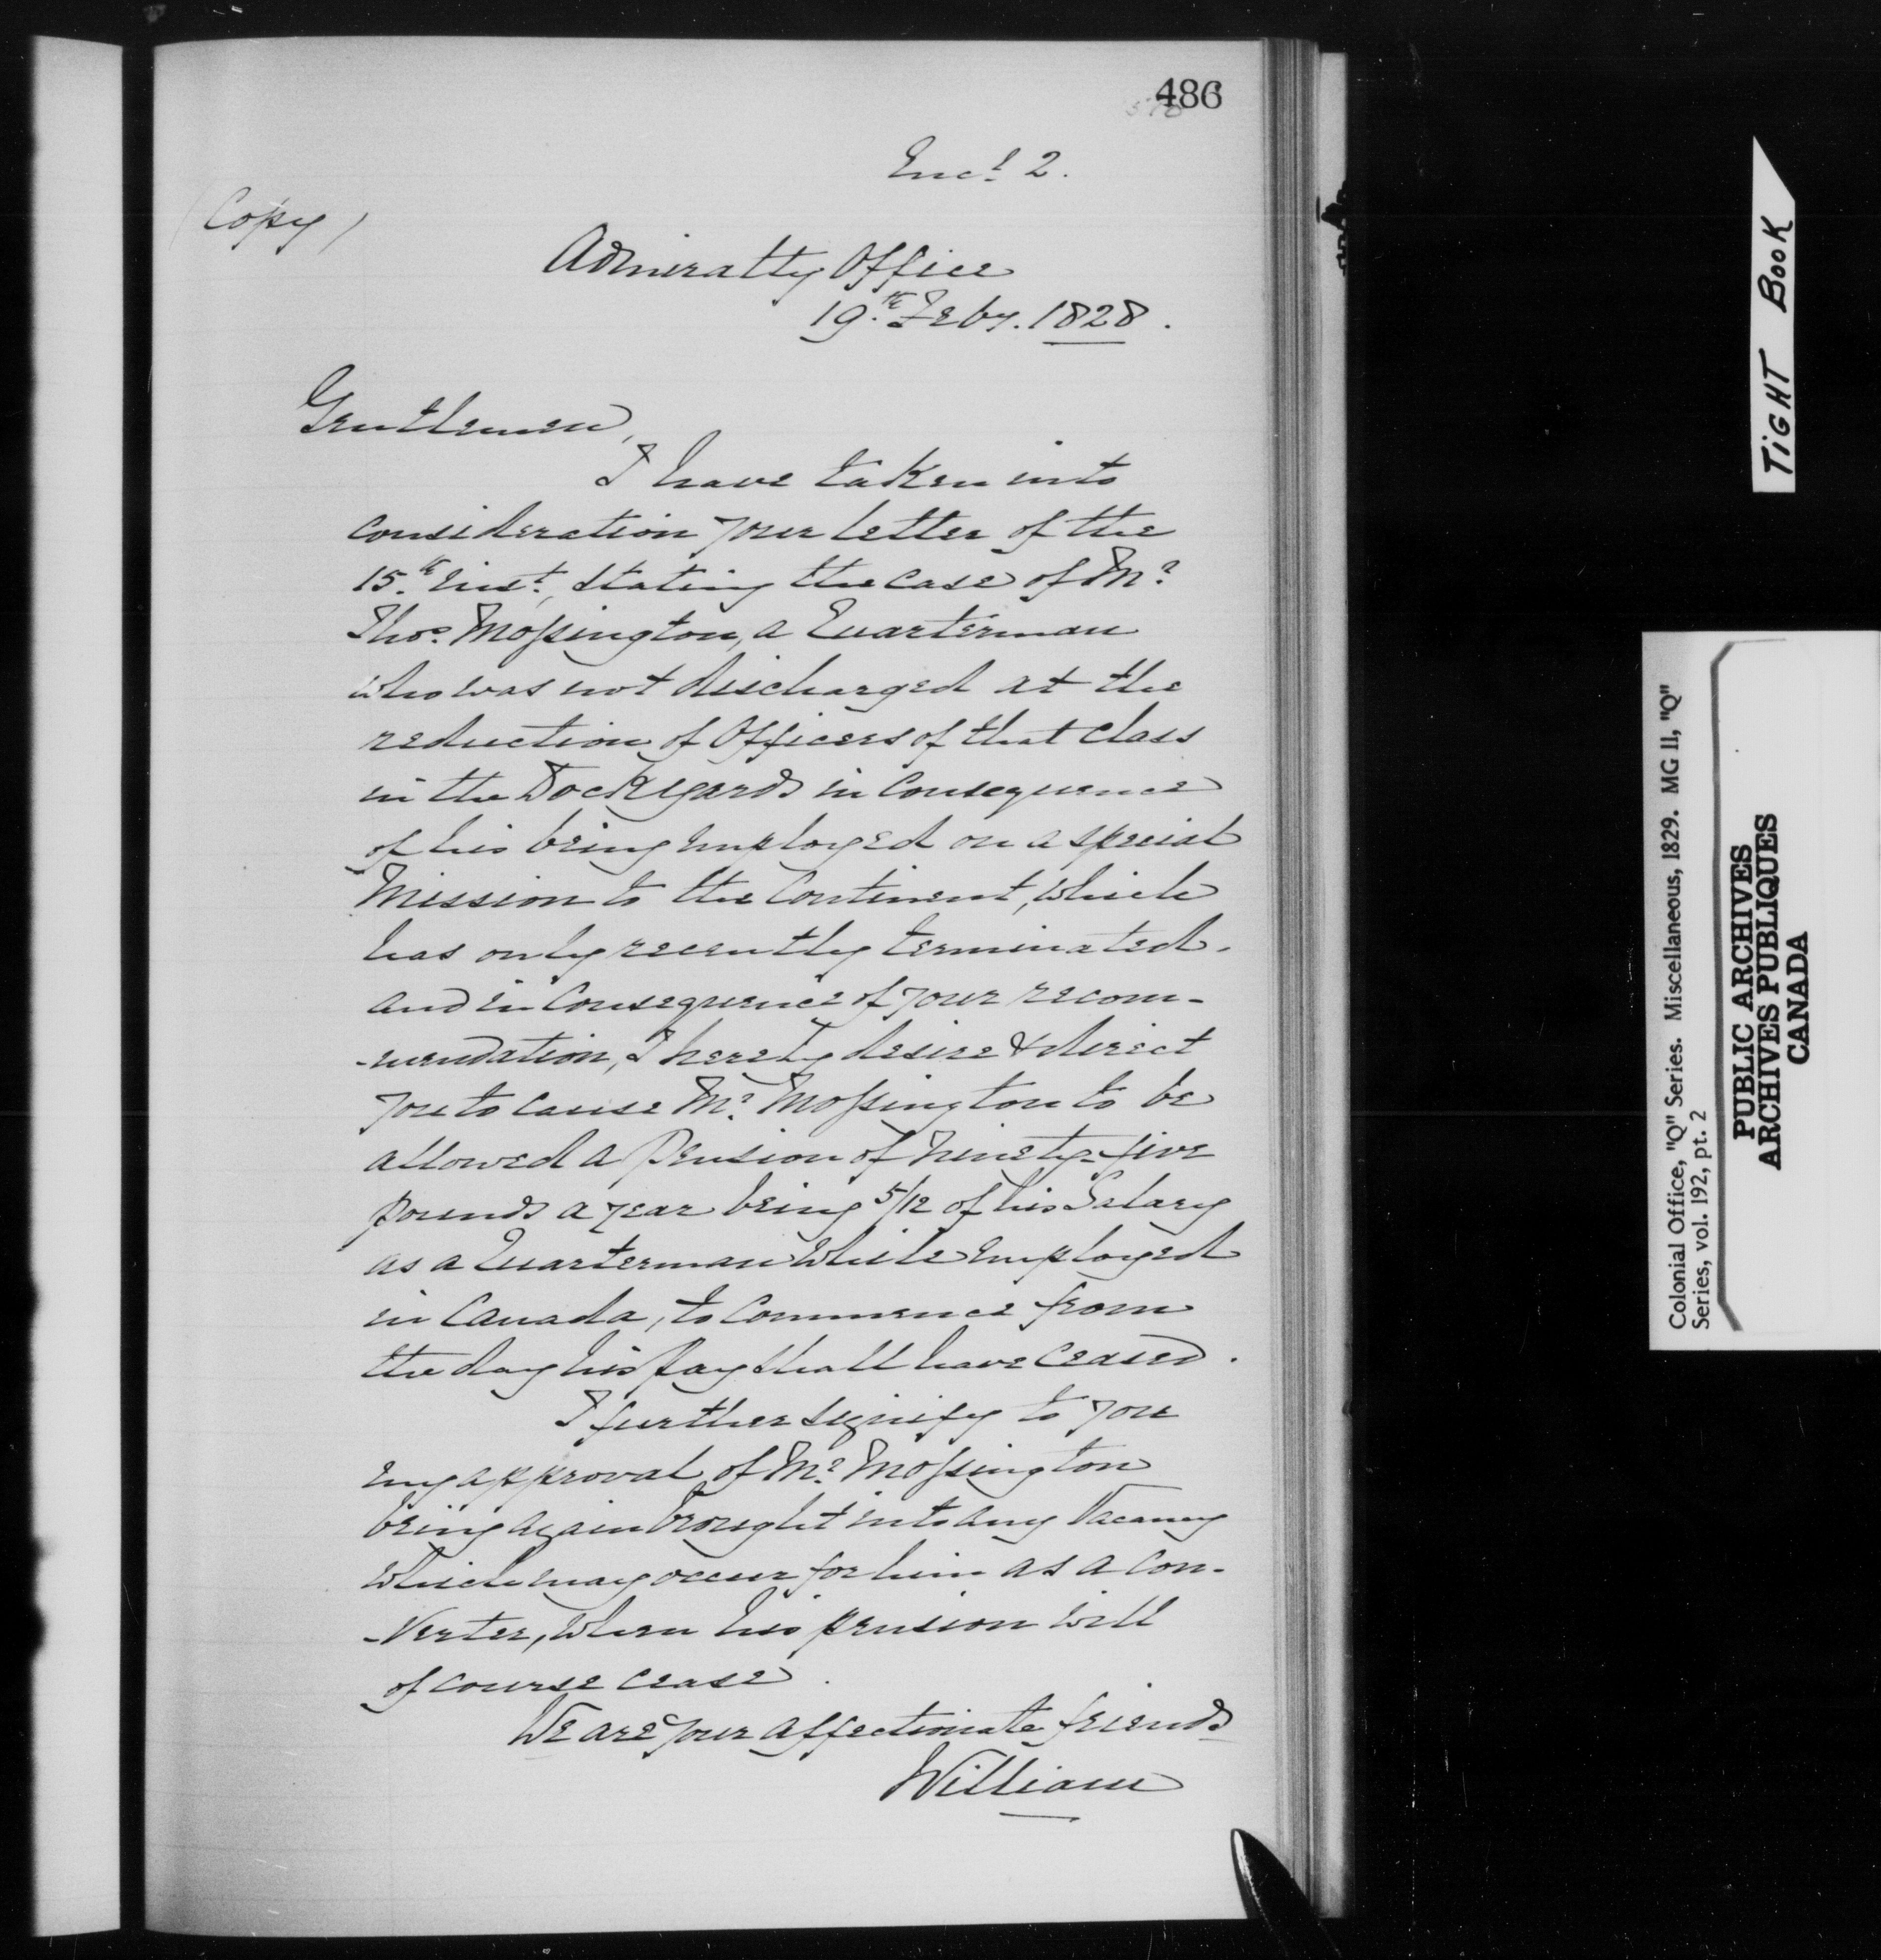 486
Encl. 2.
(Copy)
Admiralty Office
19th Feby. 1828.
Gentlemen,
I have taken into
consideration your letter of the
15th Inst., stating the case of Mr.
Thos. Mossington, a Quarterman
who was not discharged at the
reduction of Officers of that class
in the Dockyards in consequence
of his being employed on a special
Mission to the Continent, which
has only recently terminated.
and in consequence of your recom-
-mendation, I hereby desire & direct
you to cause Mr. Mossington to be
allowed a Pension of Ninety-five
pounds a year being 5/12 of his Salary
as a Quarterman while employed
in Canada, to commence from
the day his pay shall have ceased.
I further signify to you
my approval of Mr. Mossington
being again brought into any Vacancy
which may occur for him as a Con-
-verter, when his pension will
of course cease.
We are your affectionate friends
William
TIGHT BOOK
Colonial Office, "Q" Series. Miscellaneous, 1829. MG 11, "Q"
Series, vol. 192, pt. 2
PUBLIC ARCHIVES
ARCHIVES PUBLIQUES
CANADA